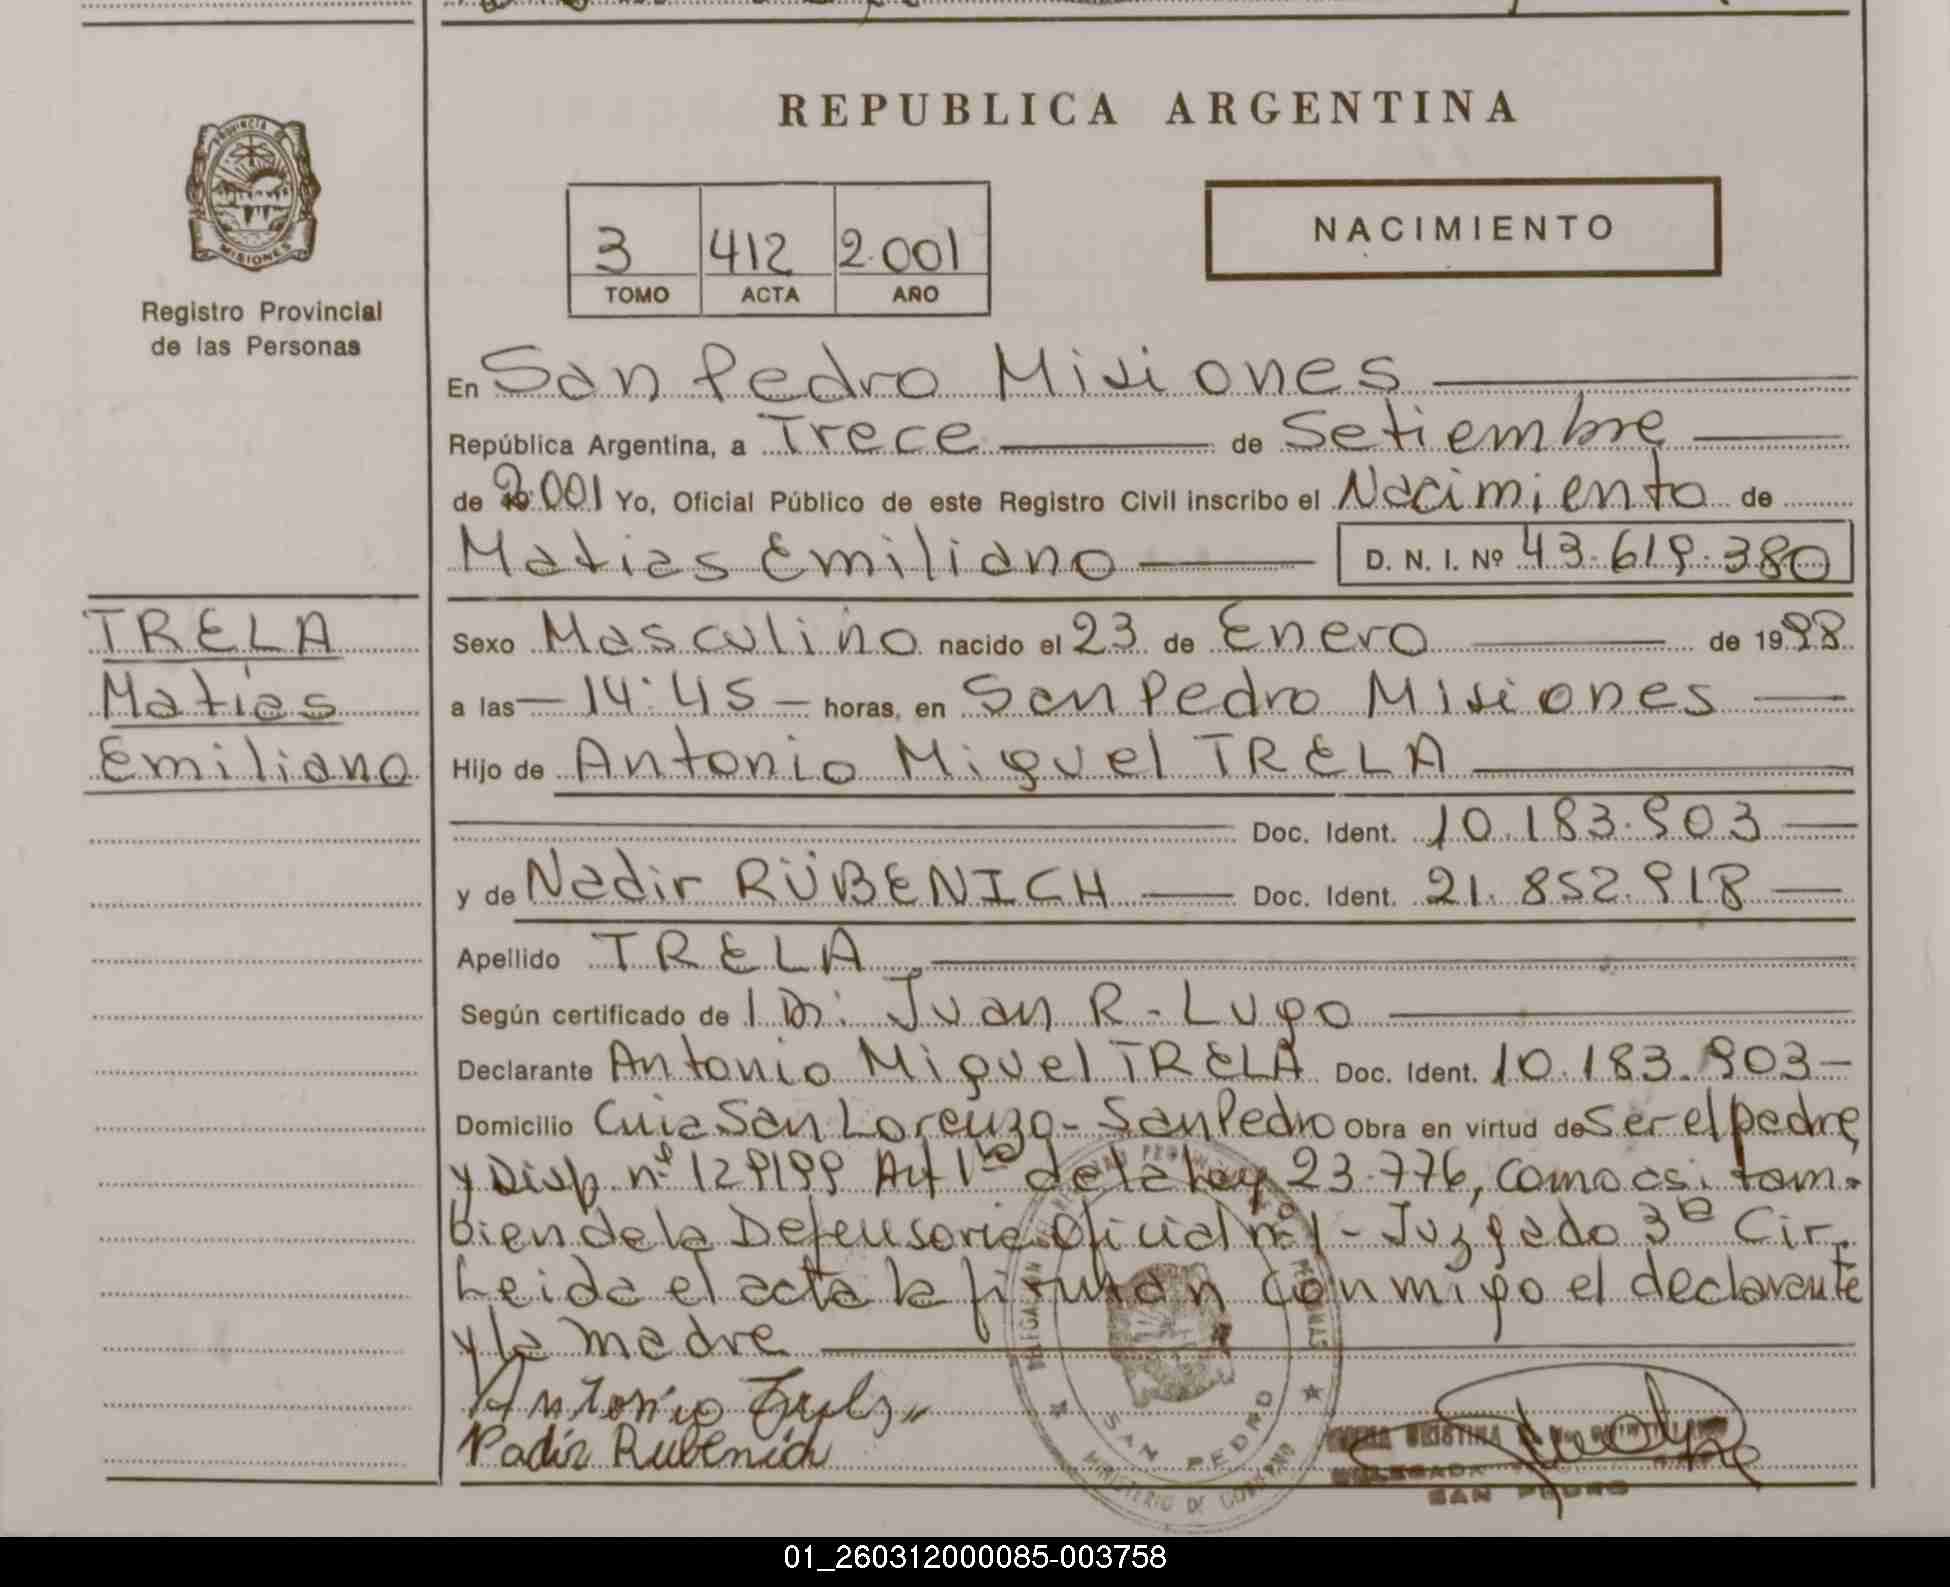 REPUBLICA ARGENTINA
PROVINCIA DE
MISIONES
Registro Provincial
de las Personas
3 412 2.001
TOMO ACTA AÑO
NACIMIENTO
En San Pedro Misiones
República Argentina, a Trece de Setiembre
de 2.001 Yo, Oficial Público de este Registro Civil inscribo el Nacimiento de
Matias Emiliano D. N. I. Nº 43.619.380
TRELA
Matías
Emiliano
Sexo Masculino nacido el 23 de Enero de 1998
a las 14:45 horas, en San Pedro Misiones
Hijo de Antonio Miguel TRELA
Doc. Ident. 10.183.903
y de Nadir RÜBENICH Doc. Ident. 21.852.918
Apellido TRELA
Según certificado de l Dr: Juan R. Lugo
Declarante Antonio Miguel TRELA Doc. Ident. 10.183.903
Domicilio San Lorenzo - San Pedro Obra en virtud de ser el padre
y Disp. nº 129199 Art 1º de la ley 23.776, como asi tam-
bien de la Defensoria Oficial nº 1 - Juzgado 3ª Cir.
Leida el acta la firman conmigo el declarante
y la madre
Antonio
Nadir Rubenich
SAN PEDRO
MINISTERIO DE GOBIERNO
SAN PEDRO
01_260312000085-003758